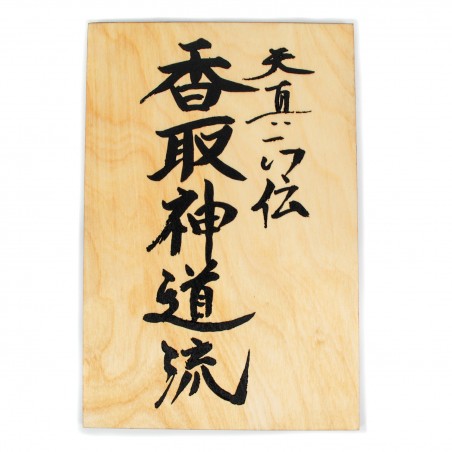 天真正伝
香取神道流